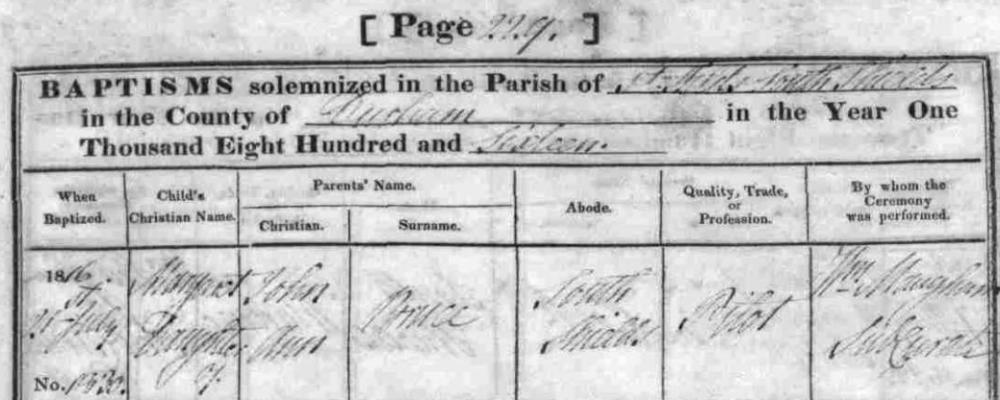 [ Page 229. ]
BAPTISMS solemnized in the Parish of St. Hilds South Shields
in the County of Durham in the Year One
Thousand Eight Hundred and Sixteen.
When Baptized.
Child's Christian Name.
Parents' Name.
Christian.
Surname.
Abode.
Quality, Trade, or Profession.
By whom the Ceremony was performed.
1816.
July
No.
Margaret
Daughter
of
John
Ann
Bruce
South
Shields
Pilot
Wm. Maughan
Sub Curate